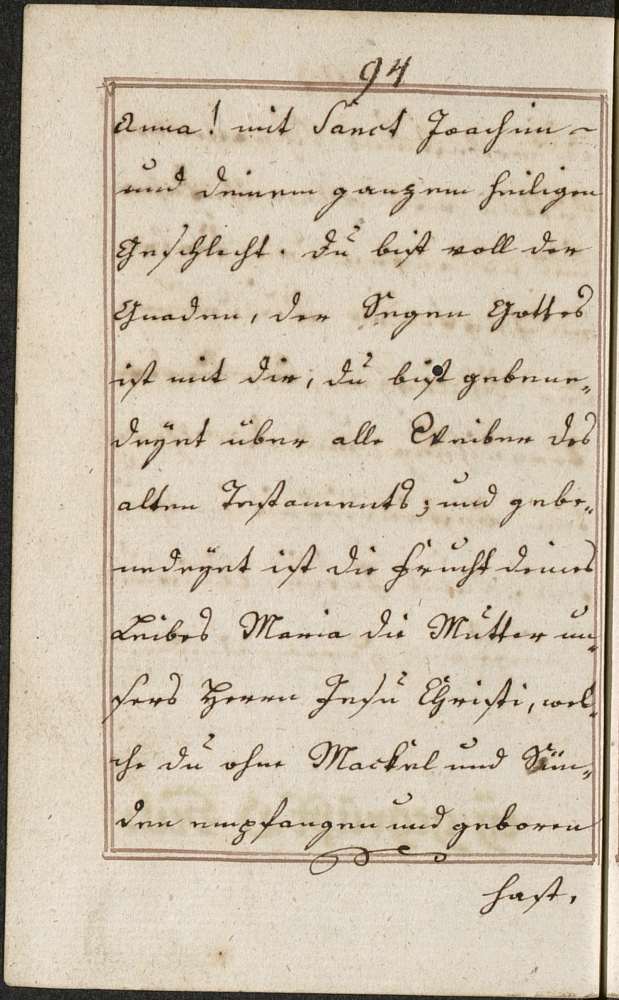 94
Anna! mit Sanct Joachim –
und deinem ganzem heiligen
Geschlecht. du bist voll der
Gnaden, der Segen Gottes
ist mit dir, du bist gebene„
deyet über alle Weiber des
alten Testaments; und gebe„
nedeyet ist die Frucht deines
Leibes Maria die Mutter un„
sers Herrn Jesu Christi, wel„
che du ohne Mackel und Sün„
den empfangen und geboren
hast,